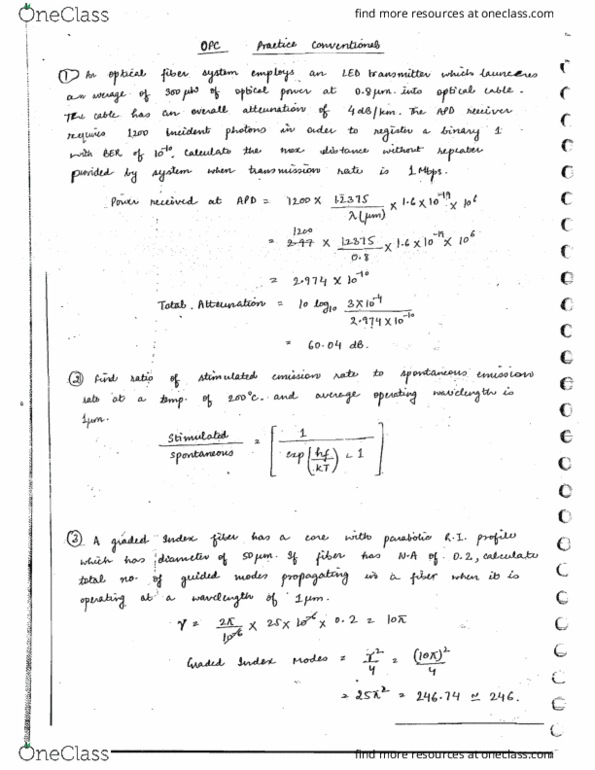 find more resources at oneclass.com
OneClass
OPC Practice Conventionals
① An optical fiber system employs an LED transmitter which launches
an average of 300 μW of optical power at 0.8μm. into optical cable.
The cable has an overall attenuation of 4 dB/km. The APD receiver
requires 1200 incident photons in order to register a binary 1
with BER of 10⁻¹⁰. Calculate the max distance without repeater
provided by system when transmission rate is 1 Mbps.
Power received at APD = 1200 × 12375/λ(μm) × 1.6 × 10⁻¹⁹ × 10⁶
= 1200 × 12375/0.8 × 1.6 × 10⁻¹⁹ × 10⁶
= 2.974 × 10⁻¹⁰
Total Attenuation = 10 log₁₀ 3×10⁻⁴/2.974×10⁻¹⁰
= 60.04 dB.
② Find ratio of stimulated emission rate to spontaneous emission
rate at a temp. of 200°C. and average operating wavelength is
1μm.
Stimulated/spontaneous = [1/exp(hf/kT) - 1]
③ A graded Index fiber has a core with parabolic R.I. profile
which has diameter of 50μm. If fiber has N.A of 0.2, calculate
total no. of guided modes propagating in a fiber when it is
operating at a wavelength of 1μm.
γ = 2π/10⁻⁶ × 25 × 10⁻⁶ × 0.2 = 10π
Graded Index Modes = γ²/4 = (10π)²/4
= 25π² = 246.74 ≃ 246.
OneClass
find more resources at oneclass.com